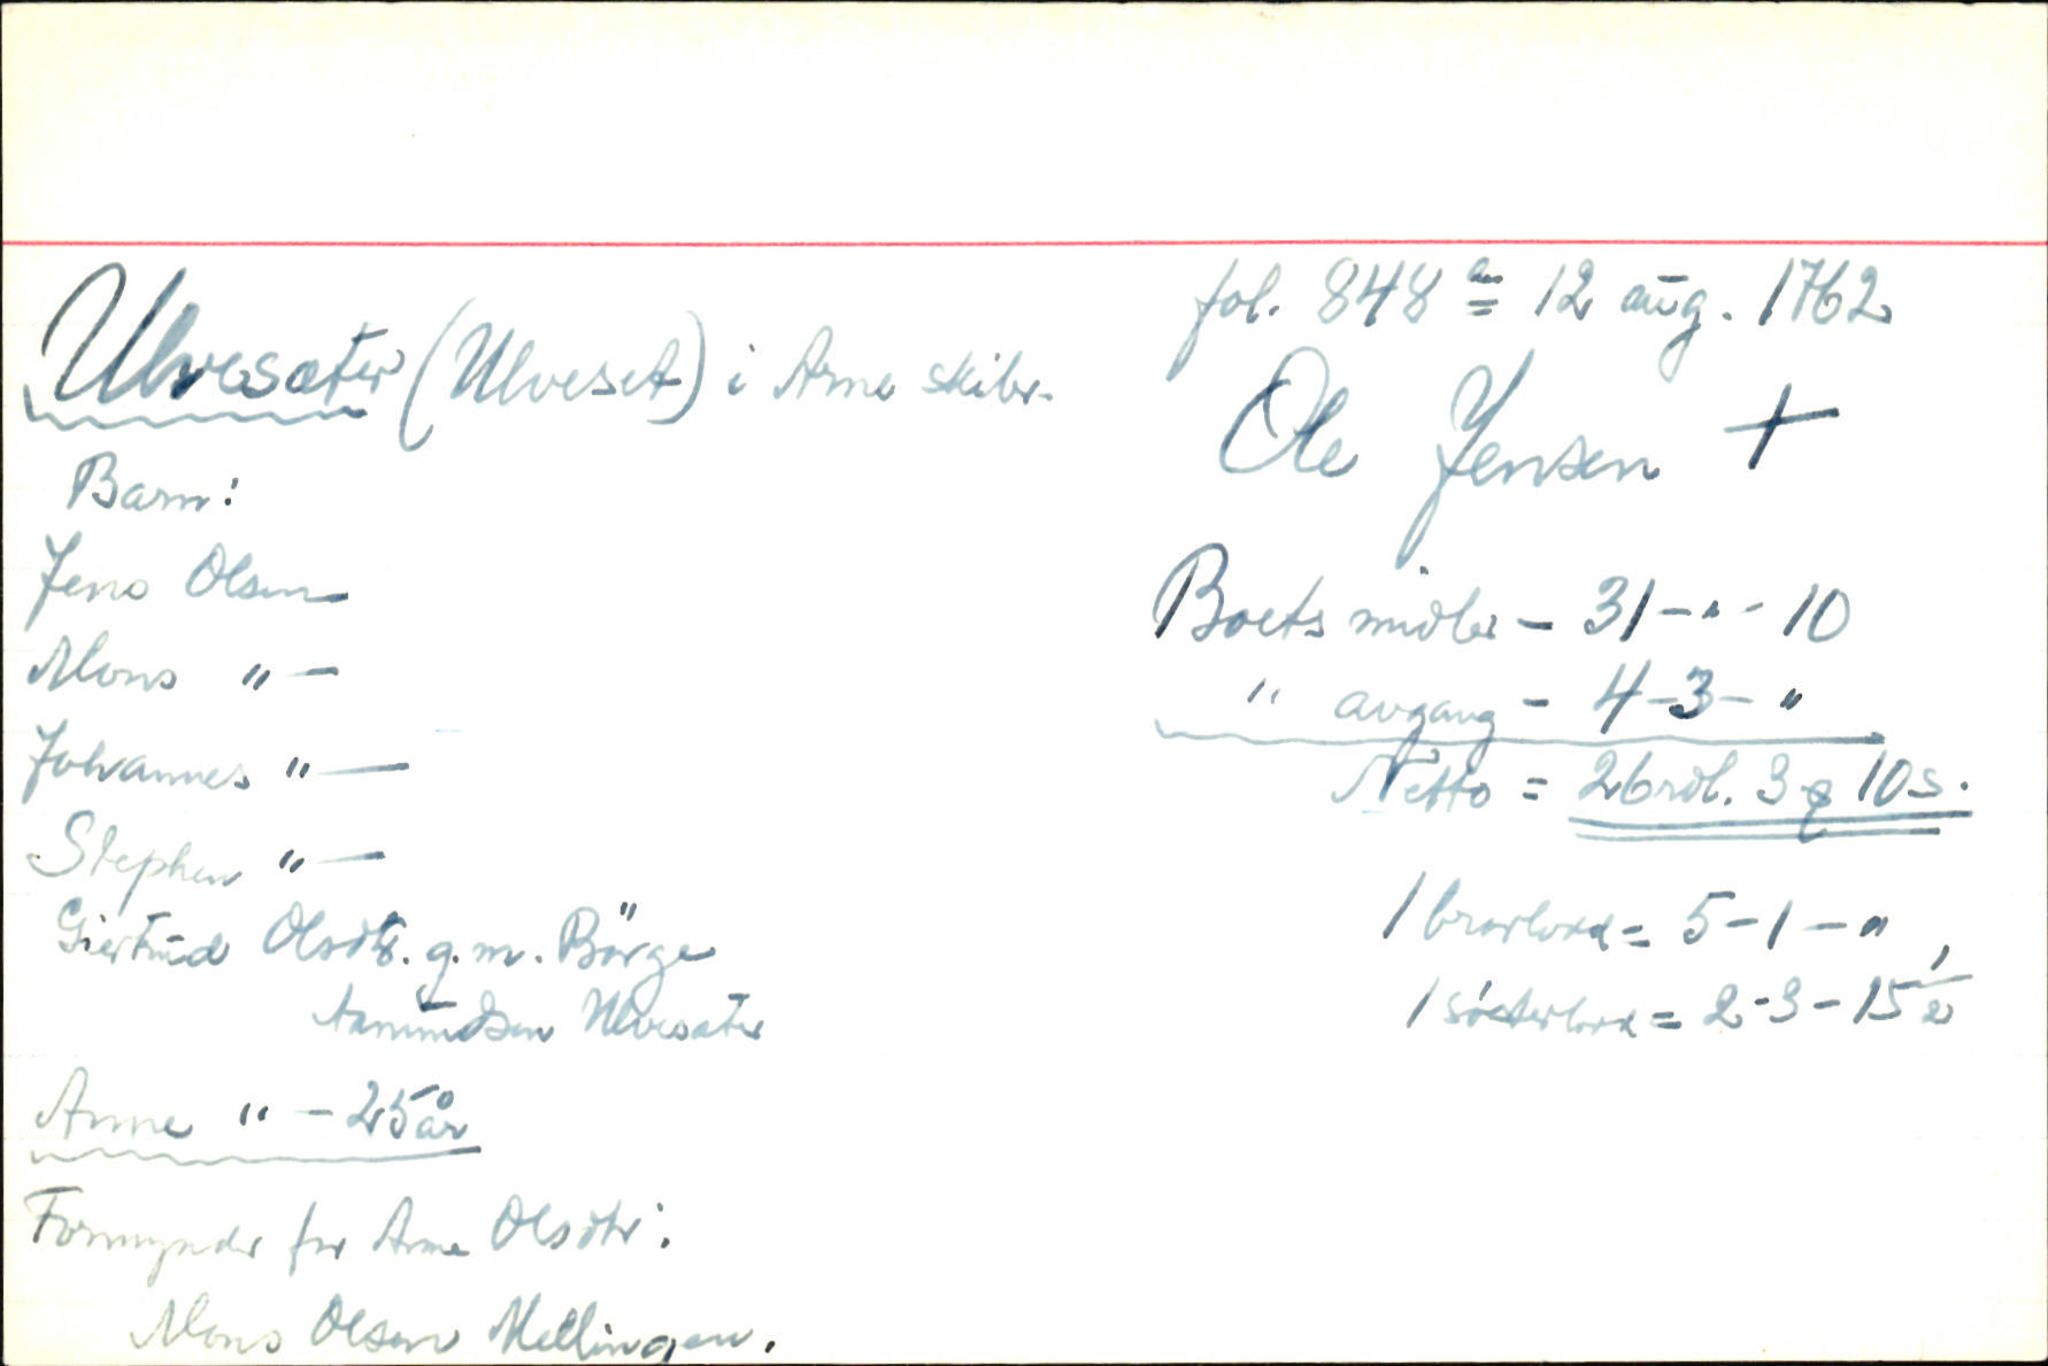 fol. 848 den 12 aug. 1762
Ulvesæter (Ulveset) i Arne skibr.
Ole Jensen +
Barn:
Jens Olsen
Mons " —
Johannes " —
Stephen " —
Giertrud Olsdtr. g.m. Börge
Aamundsen Ulvesæter
Anne " — 25 år
Formynder for Anne Olsdtr:
Mons Olsen Mellingen.
Boets midler – 31 – " – 10
" avgang – 4 – 3 – "
Netto = 26 rdl. 3 q 10 s.
1 brorlodd = 5 – 1 – "
1 sösterlodd = 2 – 3 – 15 1/2